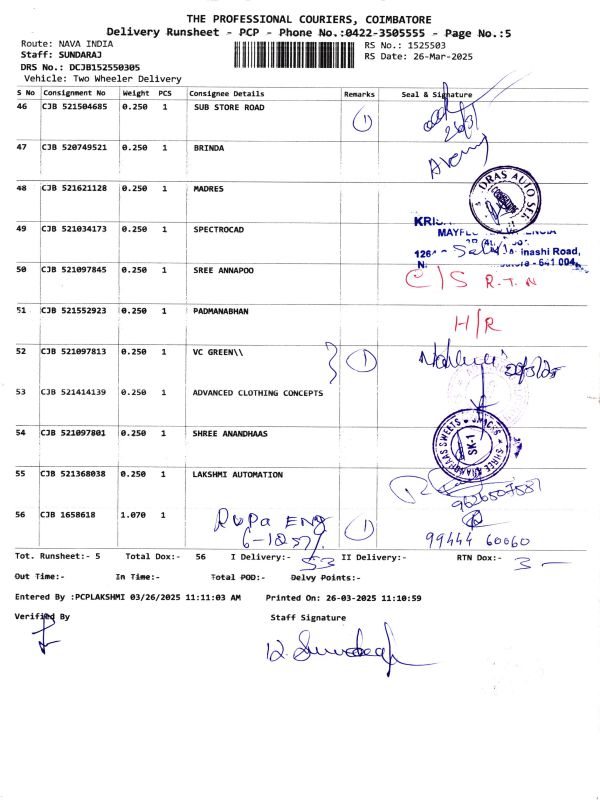 THE PROFESSIONAL COURIERS, COIMBATORE
Delivery Runsheet - PCP - Phone No.:0422-3505555 - Page No.:5
Route: NAVA INDIA RS No.: 1525503
Staff: SUNDARAJ RS Date: 26-Mar-2025
DRS No.: DCJB152550305
Vehicle: Two Wheeler Delivery
S No Consignment No Weight PCS Consignee Details Remarks Seal & Signature
46 CJB 521504685 0.250 1 SUB STORE ROAD 1
47 CJB 520749521 0.250 1 BRINDA
48 CJB 521621128 0.250 1 MADRES DRAS AUTO SER
49 CJB 521034173 0.250 1 SPECTROCAD
KRIS
MAYFL
126 inashi Road,
- 641 004
50 CJB 521097845 0.250 1 SREE ANNAPOO C/S R.T.N
51 CJB 521552923 0.250 1 PADMANABHAN H/R
52 CJB 521097813 0.250 1 VC GREEN\\ 1
53 CJB 521414139 0.250 1 ADVANCED CLOTHING CONCEPTS
54 CJB 521097801 0.250 1 SHREE ANANDHAAS SHREE ANANDHAAS SWEETS SK-1
55 CJB 521368038 0.250 1 LAKSHMI AUTOMATION 9626507587
56 CJB 1658618 1.070 1 Rupa ENG 1 99444 60060
Tot. Runsheet:- 5 Total Dox:- 56 I Delivery:- 53 II Delivery:- RTN Dox:- 3 -
Out Time:- In Time:- Total POD:- Delvy Points:-
Entered By :PCPLAKSHMI 03/26/2025 11:11:03 AM Printed On: 26-03-2025 11:10:59
Verified By Staff Signature